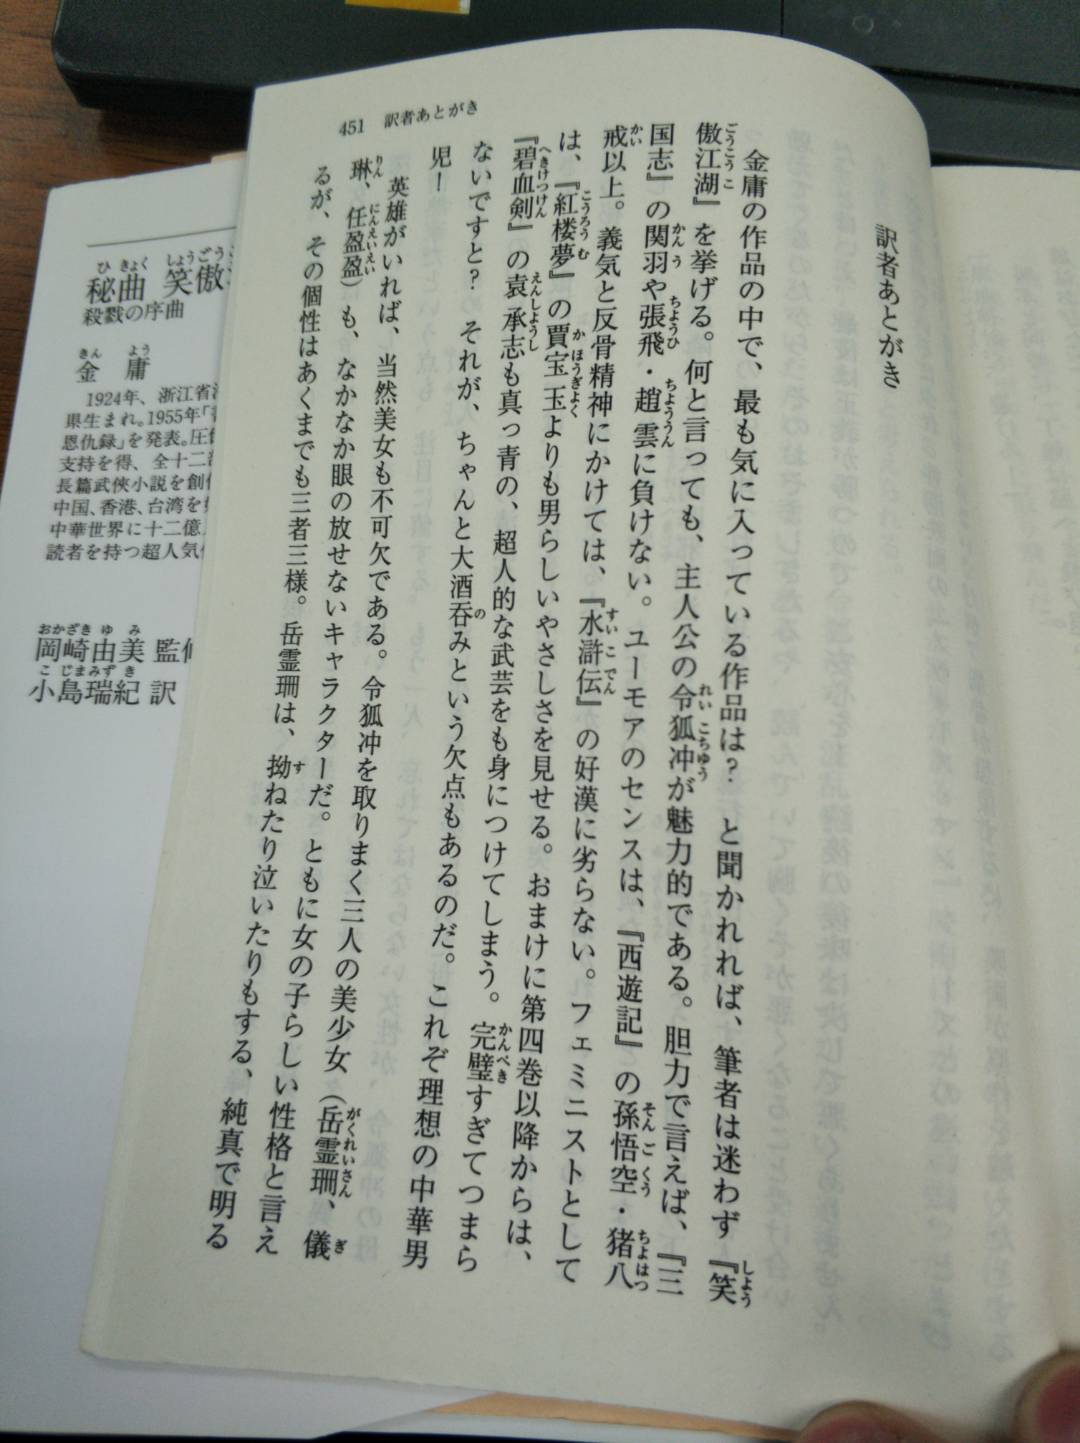 451 訳者あとがき
訳者あとがき
金庸の作品の中で、最も気に入っている作品は? と聞かれれば、筆者は迷わず『笑
傲江湖』を挙げる。何と言っても、主人公の令狐冲が魅力的である。胆力で言えば、『三
国志』の関羽や張飛・趙雲に負けない。ユーモアのセンスは、『西遊記』の孫悟空・猪八
戒以上。義気と反骨精神にかけては、『水滸伝』の好漢に劣らない。フェミニストとして
は、『紅楼夢』の賈宝玉よりも男らしいやさしさを見せる。おまけに第四巻以降からは、
『碧血剣』の袁承志も真っ青の、超人的な武芸をも身につけてしまう。完璧すぎてつまら
ないですと? それが、ちゃんと大酒呑みという欠点もあるのだ。これぞ理想の中華男
児!
英雄がいれば、当然美女も不可欠である。令狐冲を取りまく三人の美少女(岳霊珊、儀
琳、任盈盈)も、なかなか眼の放せないキャラクターだ。ともに女の子らしい性格と言え
るが、その個性はあくまでも三者三様。岳霊珊は、拗ねたり泣いたりもする、純真で明る
秘曲 笑傲
殺戮の序曲
金庸
1924年、浙江省
県生まれ。1955年「
恩仇録」を発表。圧
支持を得、全十二
長篇武侠小説を創
中国、香港、台湾を
中華世界に十二億
読者を持つ超人気
岡崎由美 監
小島瑞紀 訳